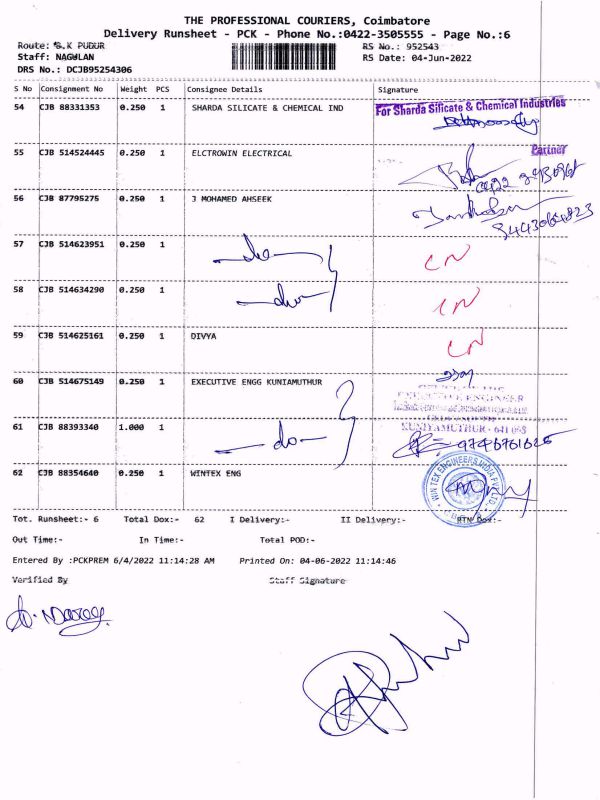 THE PROFESSIONAL COURIERS, Coimbatore
Delivery Runsheet - PCK - Phone No.:0422-3505555 - Page No.:6
Route: S.K PUDUR RS No.: 952543
Staff: NAGULAN RS Date: 04-Jun-2022
DRS No.: DCJB95254306
S No Consignment No Weight PCS Consignee Details Signature
54 CJB 88331353 0.250 1 SHARDA SILICATE & CHEMICAL IND For Sharda Silicate & Chemical Industries
Partner
55 CJB 514524445 0.250 1 ELCTROWIN ELECTRICAL
56 CJB 87795275 0.250 1 J MOHAMED AHSEEK
57 CJB 514623951 0.250 1 —do— CN
58 CJB 514634290 0.250 1 —do— CN
59 CJB 514625161 0.250 1 DIVYA CN
60 CJB 514675149 0.250 1 EXECUTIVE ENGG KUNIAMUTHUR
EXECUTIVE ENGINEER
KUNIYAMUTHUR - 641 008
61 CJB 88393340 1.000 1 —do—
62 CJB 88354640 0.250 1 WINTEX ENG WINTEX ENGINEERS INDIA PVT LTD.
Tot. Runsheet:- 6 Total Dox:- 62 I Delivery:- II Delivery:- RTN Dox:-
Out Time:- In Time:- Total POD:-
Entered By :PCKPREM 6/4/2022 11:14:28 AM Printed On: 04-06-2022 11:14:46
Verified By Staff Signature